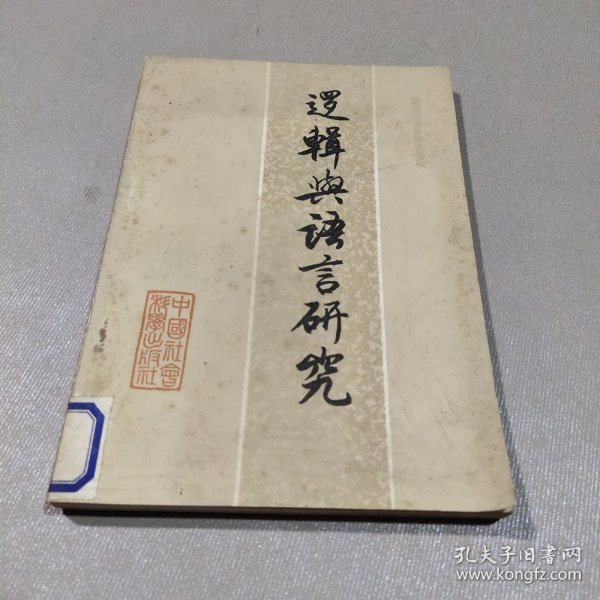 邏輯與語言研究
中國社會
科學出版社
孔夫子旧书网
www.kongfz.com